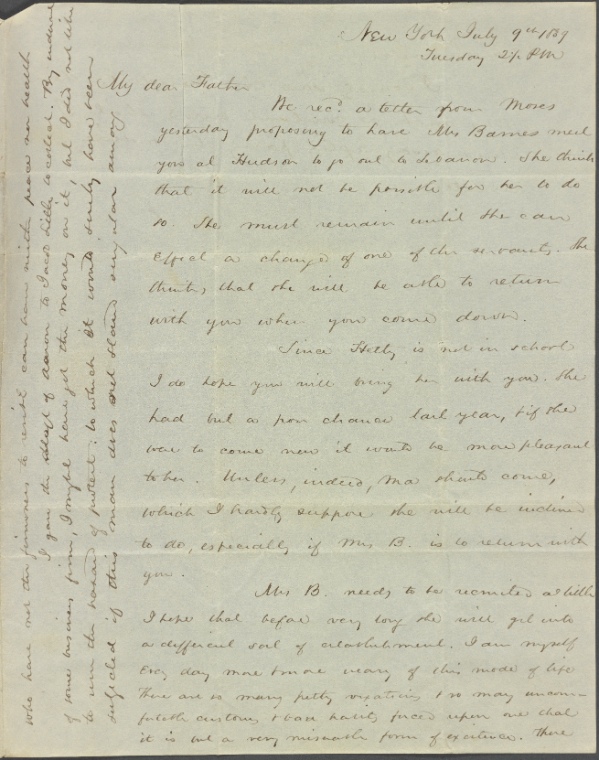 New York July 9th 1839
Tuesday 2½ PM
My dear Father
We recd. a letter from Moses
yesterday proposing to have Mrs Barnes meet
you at Hudson to go out to Lebanon. She thinks
that it will not be possible for her to do
so. She must remain until she can
effect a change of one of the servants. She
thinks, that she will be able to return
with you when you come down.
Since Hetty is not in school
I do hope you will bring her with you. She
had but a poor chance last year, & if she
was to come now it would be more pleasant
to her. Unless, indeed, Ma should come,
which I hardly suppose she will be inclined
to do, especially if Mrs B. is to return with
you.
Mrs B. needs to be recruited a little
I hope that before very long she will get into
a different sort of establishment. I am myself
every day more & more weary of this mode of life
There are so many petty vexations & so many uncom-
fortable customs & base habits, forced upon one that
it is but a very miserable form of existence. Those
who have not the firmness to resist can have neither peace nor health
I gave the draft of Aaron to Jacob Little to collect. By
of some business firm, I might have got the money on it, but I did not like
to run the hazard of protest: to which it would surely have been
subjected if this man does not stand very clear among